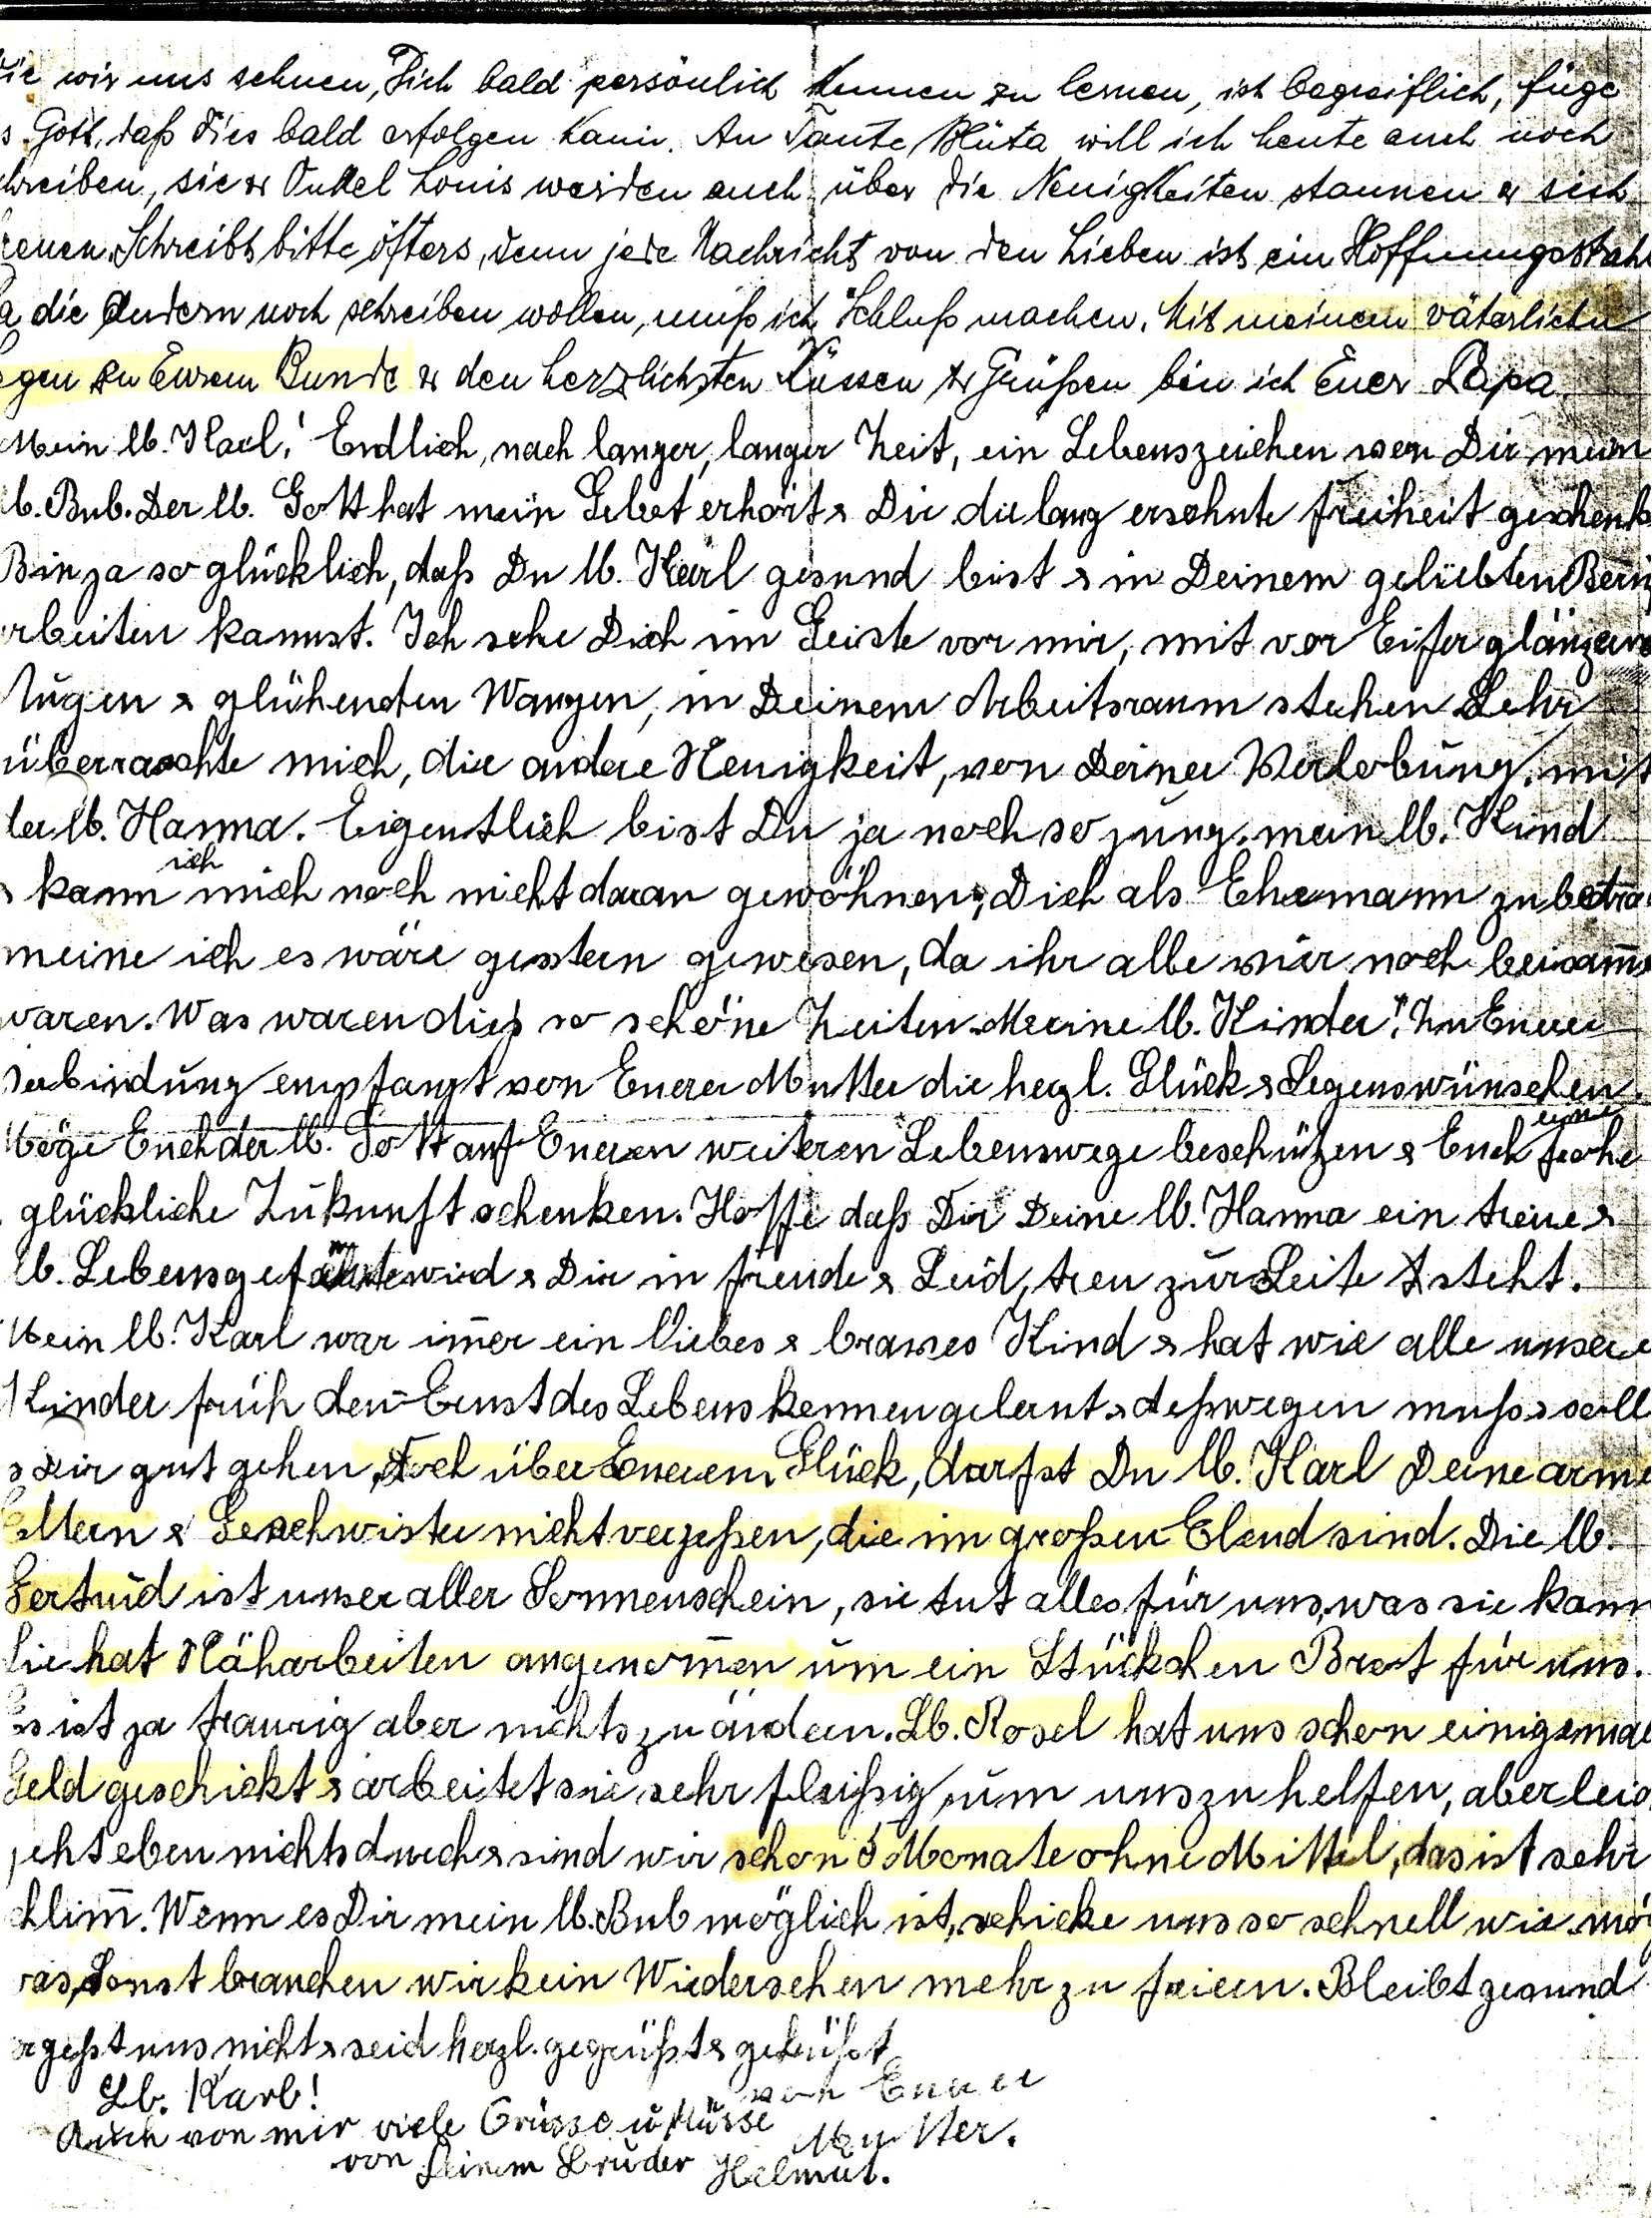 wir uns sehnen, Dich bald persönlich kennen zu lernen, ist begreiflich, füge
s Gott, daß dies bald erfolgen kann. An Tante will ich heute auch noch
hreiben, sie & Onkel Louis werden auch über die Neuigkeiten staunen & sich
reuen. Schreibt bitte öfters, denn jede Nachricht von den Lieben ist ein Hoffnungsstrahl
a die Andern noch schreiben wollen, muß ich Schluß machen. Mit meinem väterlichen
egen zu Eurem Bunde & den herzlichsten Küssen & Grüßen bin ich Euer Papa.
Mein lb. Karl! Endlich, nach langer, langer Zeit, ein Lebenszeichen von Dir mein
lb. Bub. Der lb. Gott hat mein Gebet erhört & Dir die lang ersehnte Freiheit geschenk
Bin ja so glücklich, daß Du lb. Karl gesund bist & in Deinem geliebten Beru
rbeiten kannst. Ich sehe Dich im Geiste vor mir, mit vor Eifer glänzen
Augen & glühenden Wangen, in Deinem Arbeitsraum stehen Sehr
überraschte mich, die andere Neuigkeit, von Deiner Verlobung, mit
der lb. Hanna. Eigentlich bist Du ja noch so jung, mein lb. Kind
& kann ich mich noch nicht daran gewöhnen, Dich als Ehemann zu betra
meine ich es wäre gestern gewesen, da ihr alle mir noch beisam̄
waren. Was waren dies so schöne Zeiten. Meine lb. Kinder! Zu Euerer
Verbindung empfangt von Euerer Mutter die herzl. Glück & Segenswünschen.
Möge Euch der lb. Gott auf Eueren weiteren Lebenswege beschützen & Euch eine frohe
glückliche Zukunft schenken. Hoffe daß Dir Deine lb. Hanna ein treue &
lb. Lebensgefährtin wird & Dir in Freude & Leid, treu zur Seite steht.
Mein lb. Karl war im̄er ein liebes & braves Kind & hat wie alle unsere
Kinder früh den Ernst des Lebens kennen gelernt & deßwegen muß & soll
s Dir gut gehen. Doch über Euerem Glück, darfst Du lb. Karl Deine arme
Eltern & Geschwister nicht vergeßen, die im großen Elend sind. Die lb.
Gertrud ist unser aller Sonnenschein, sie tut alles für uns, was sie kann
Sie hat Näharbeiten angenom̄en um ein Stückchen Brot für uns.
Es ist ja traurig aber nichts zu ändern. Lb. Rosel hat uns schon einigemal
Geld geschickt & arbeitet sie sehr fleißig, um uns zu helfen, aber leid
geht eben nichts durch & sind wir schon Monate ohne Mittel, das ist sehr
chlim̄. Wenn es Dir mein lb. Bub möglich ist, schicke uns so schnell wie mög
was, Sonst brauchen wir kein Wiedersehen mehr zu feiern. Bleibt gesund
ergeßt uns nicht & seid herzl. gegrüßt & geküßt
von Euerer
Mutter.
Lb. Karl!
Auch von mir viele Grüsse u Küsse
von Deinem Bruder Helmut.